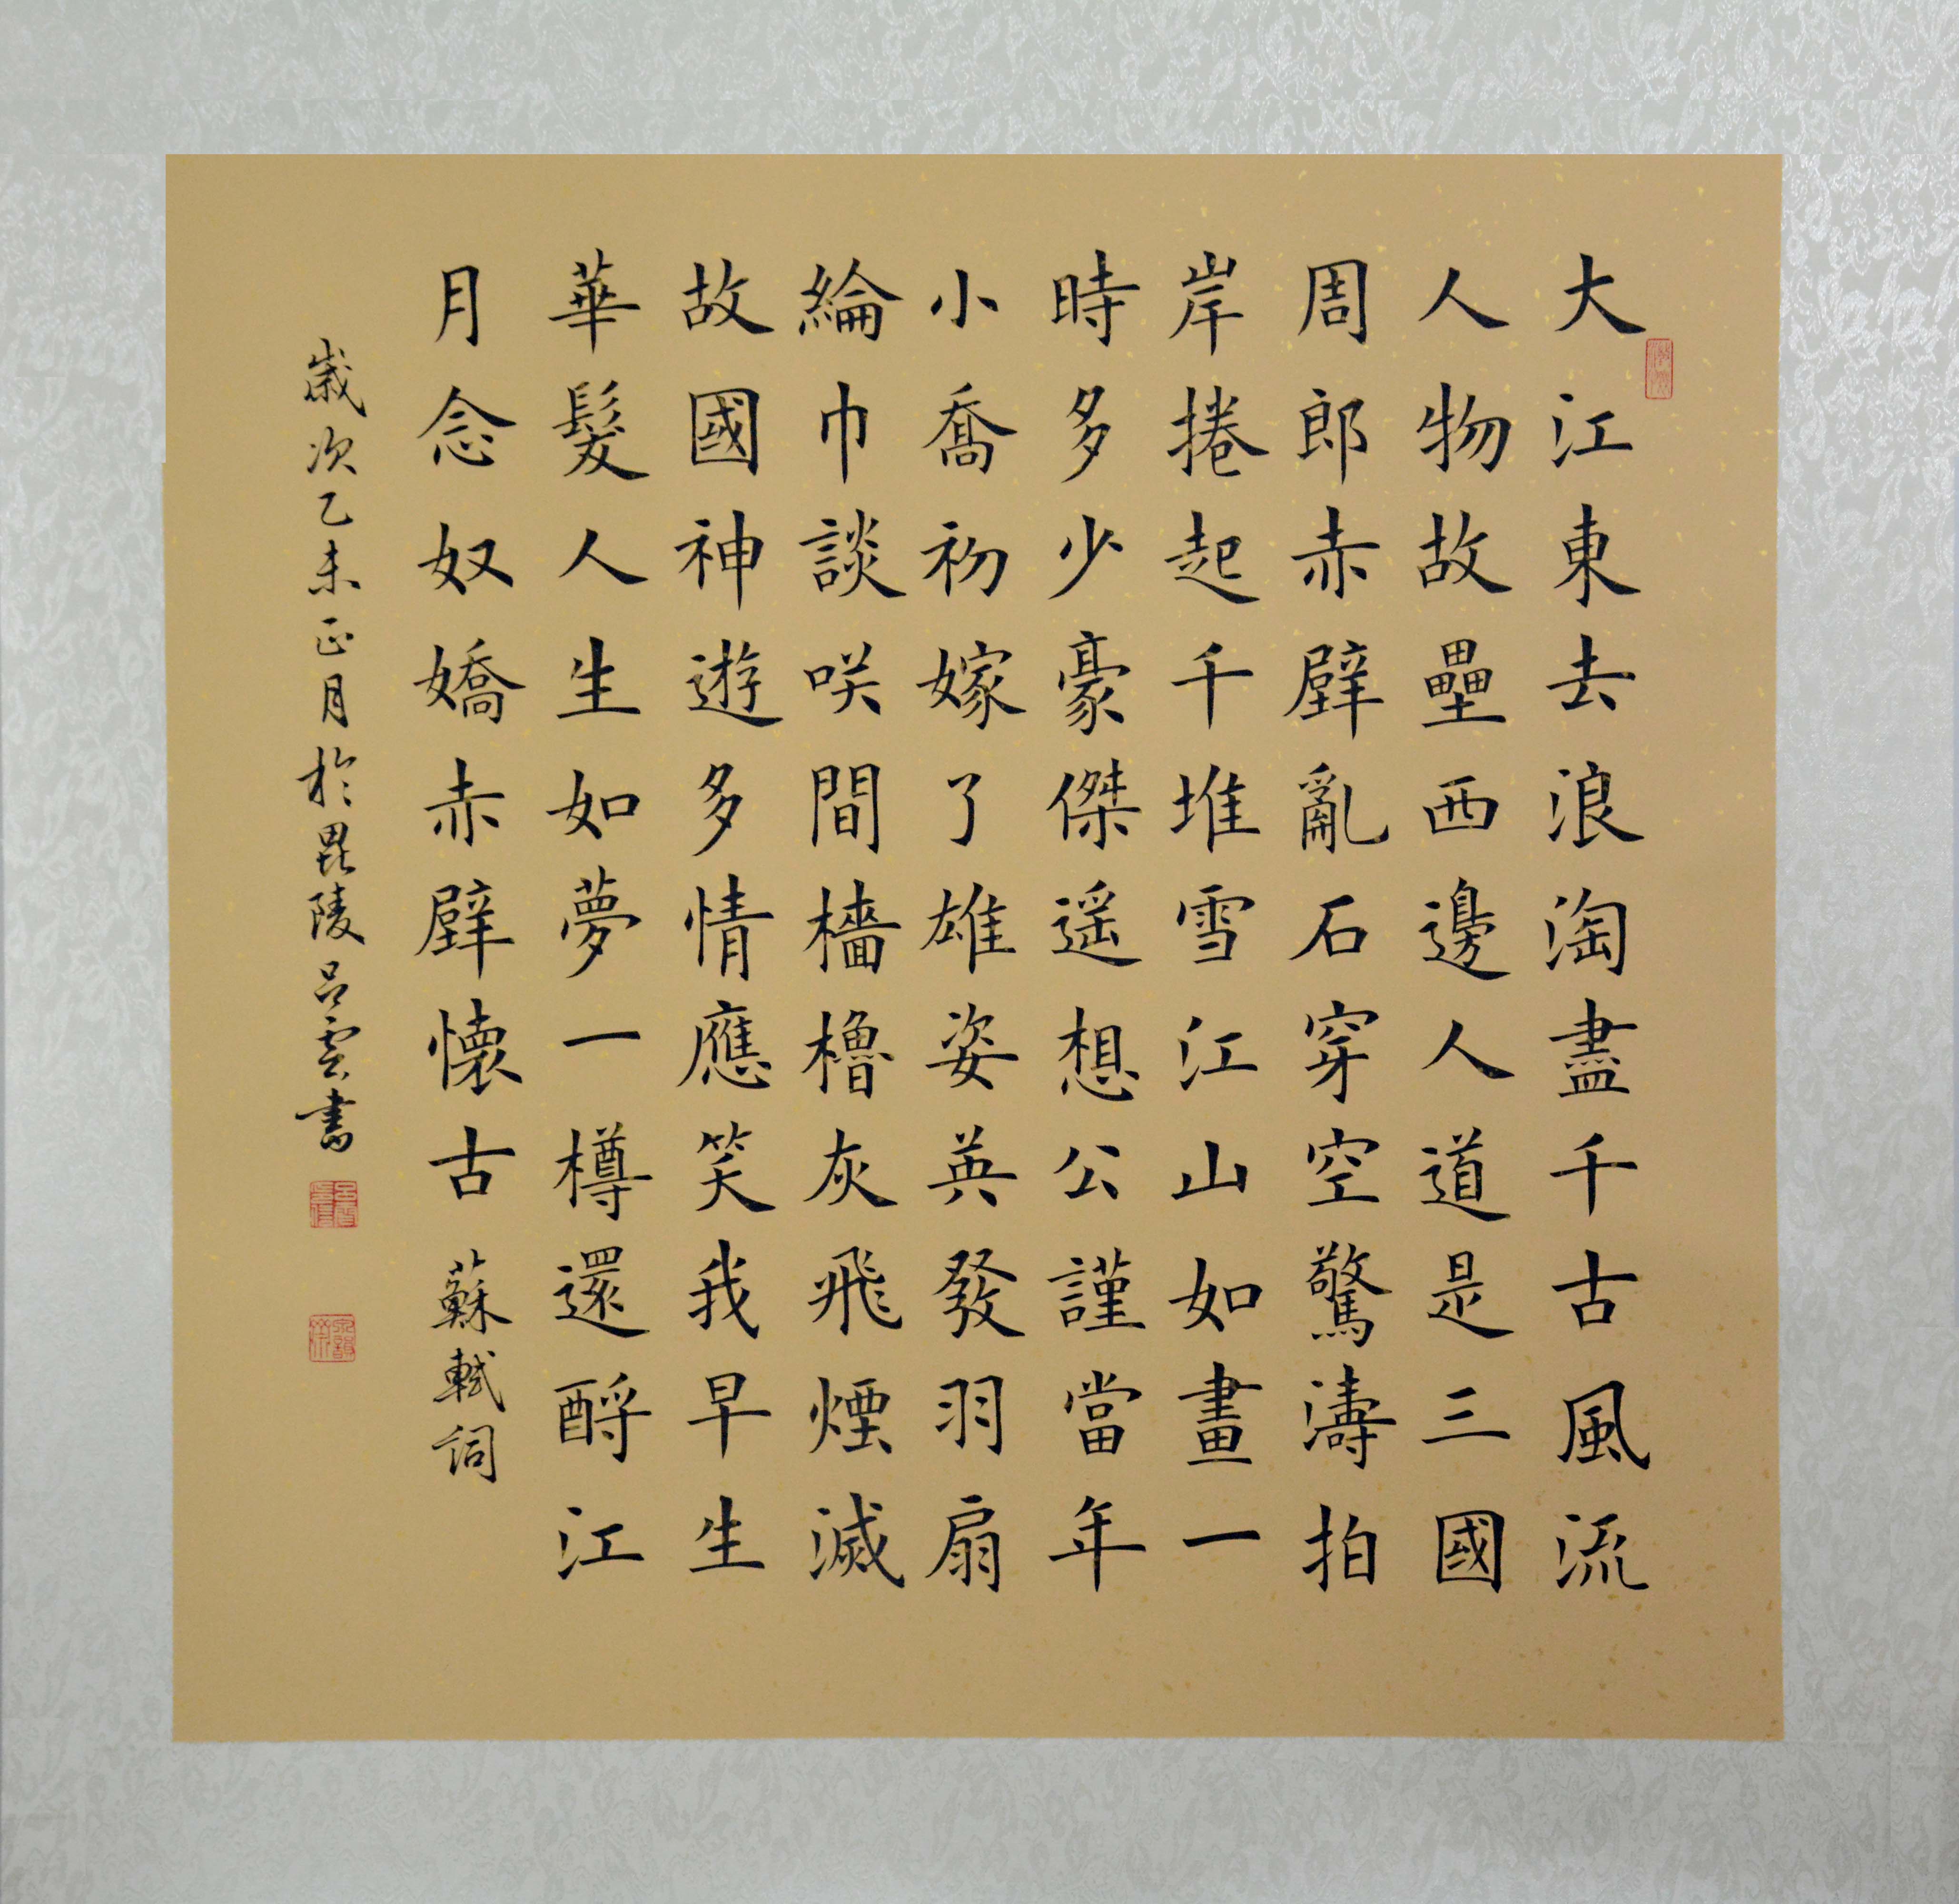 大江東去浪淘盡千古風流
人物故壘西邊人道是三國
周郎赤壁亂石穿空驚濤拍
岸捲起千堆雪江山如畫一
時多少豪傑遥想公謹當年
小喬初嫁了雄姿英發羽扇
綸巾談咲間檣櫓灰飛煙滅
故國神遊多情應笑我早生
華髮人生如夢一樽還酹江
月念奴嬌赤壁懷古 蘇軾詞
歲次乙未正月於毘陵呂雲書